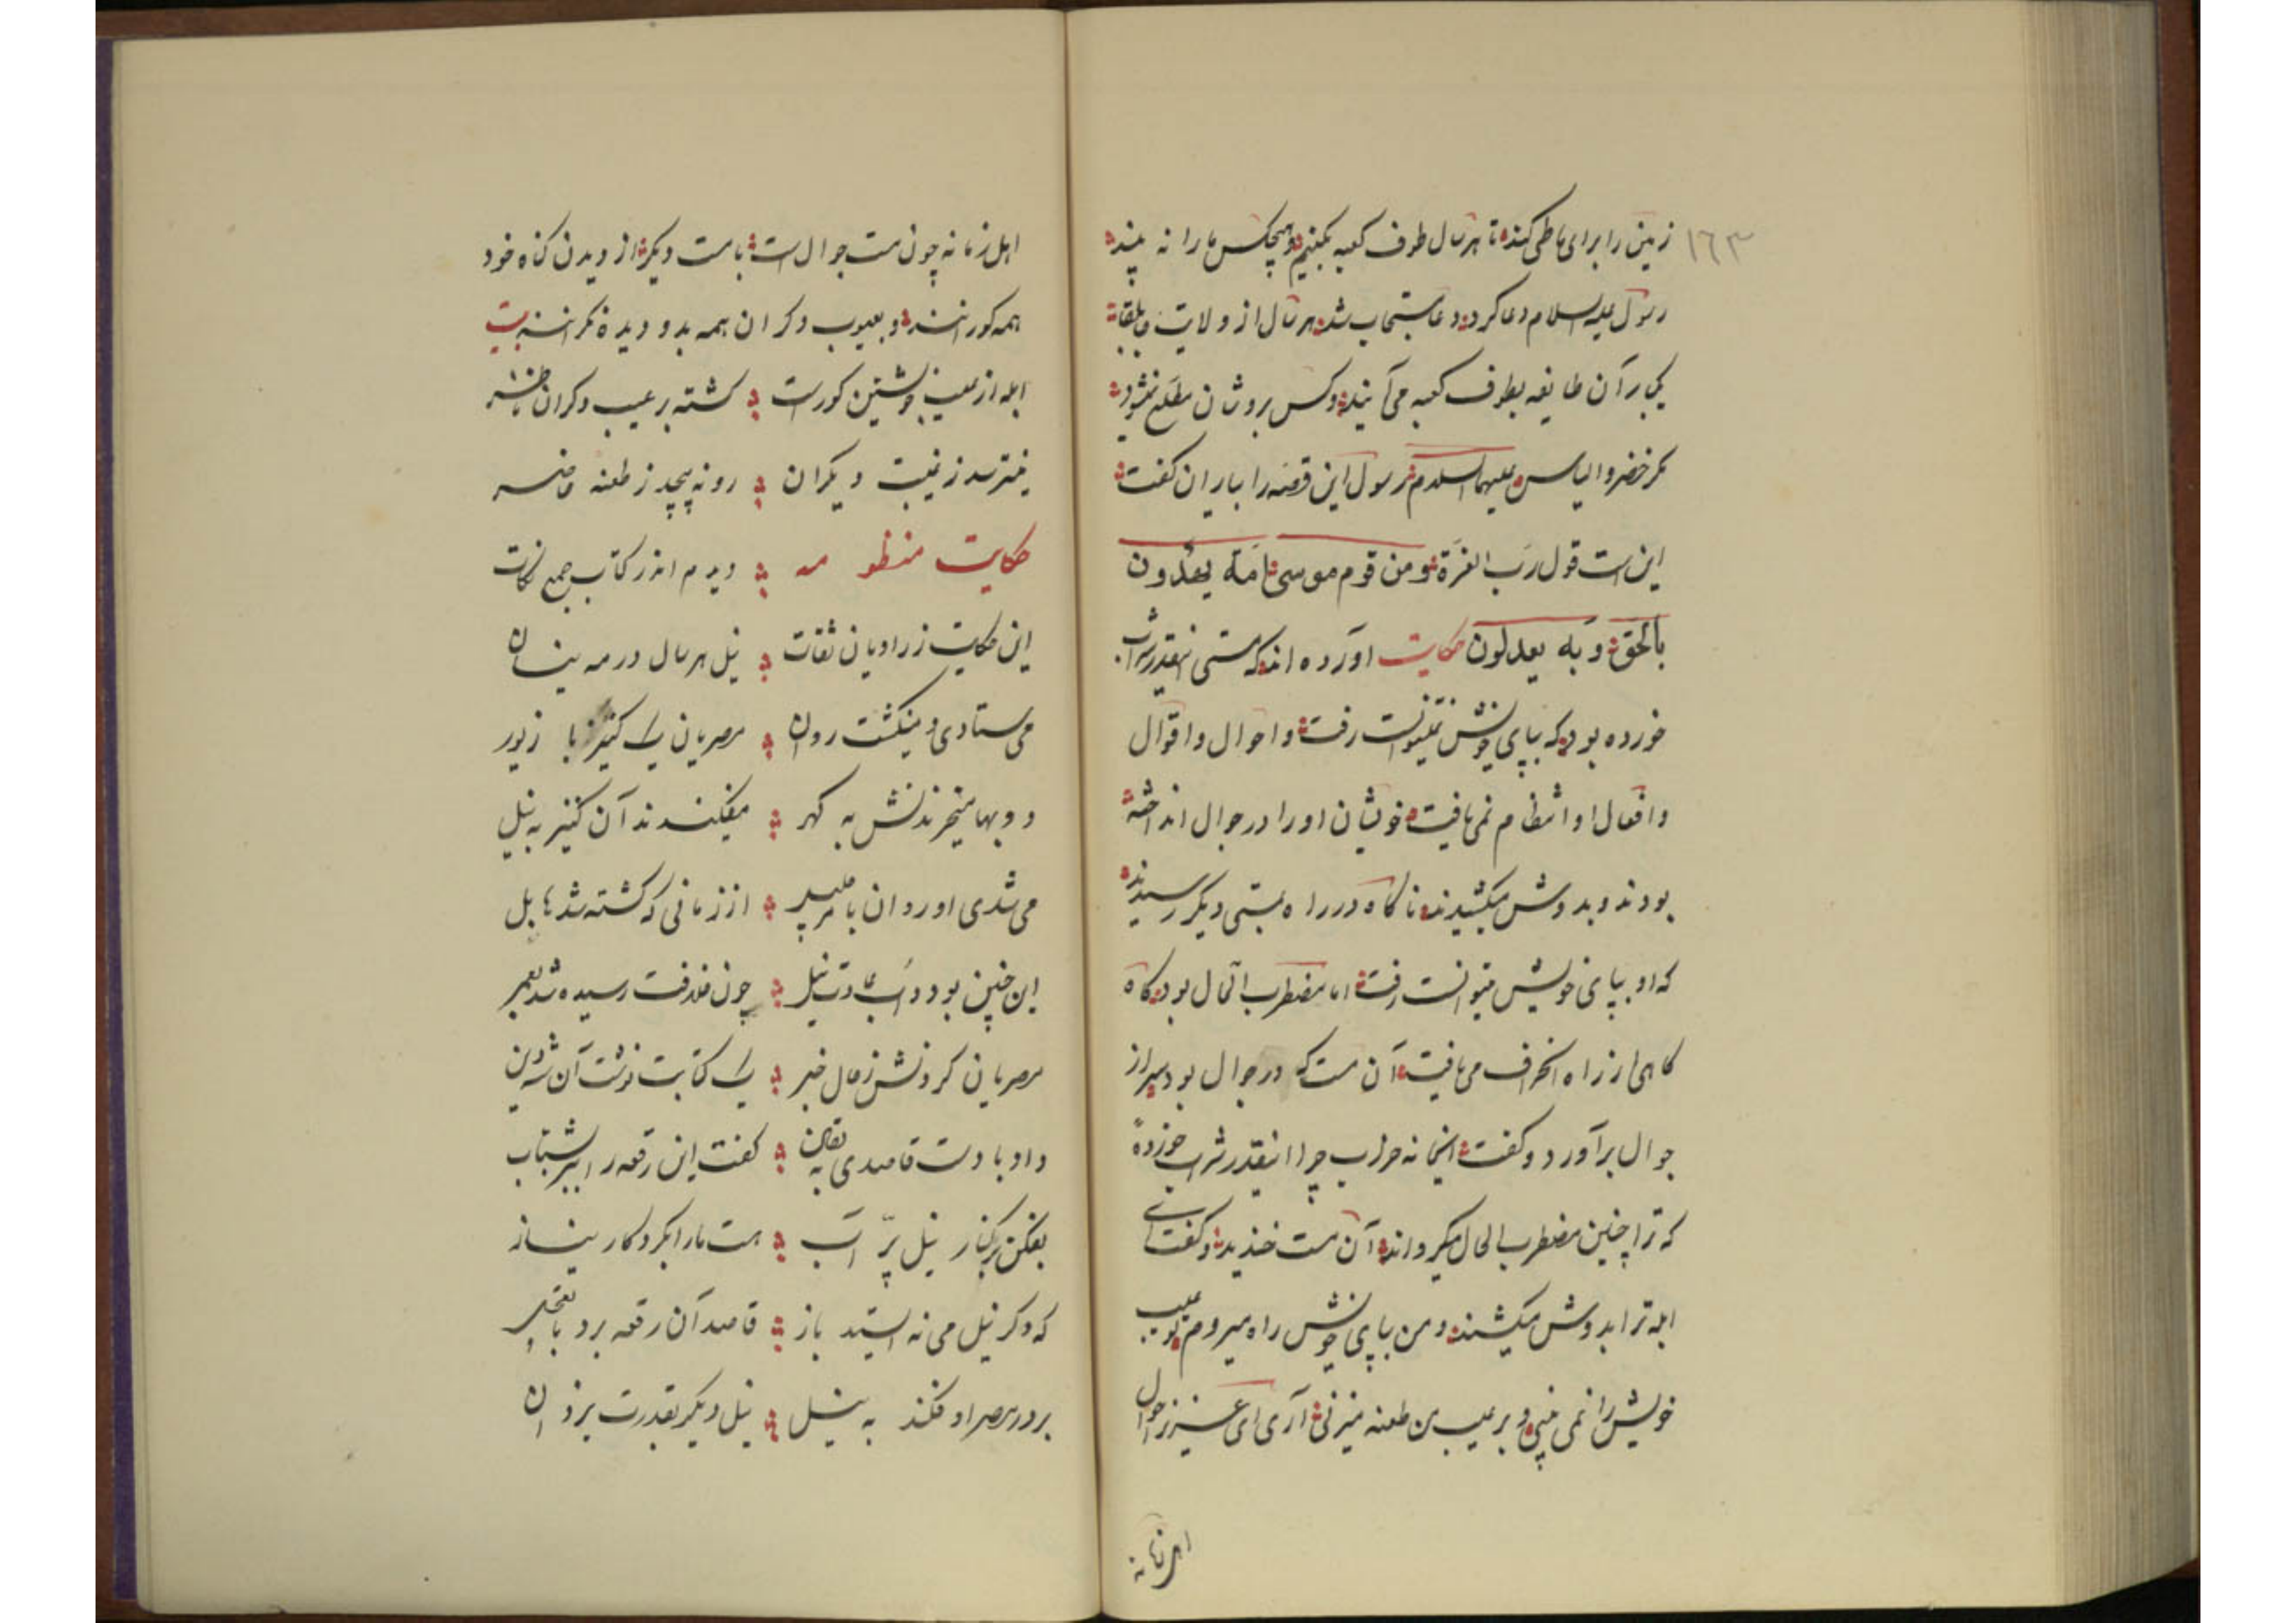 ۱۶۳
زمین را برای ما طی کند تا هر سال طوف کعبه بکنیم و هیچکس ما را نه بیند
رسول علیه السلام دعا کرد دعا مستجاب شد هر سال از ولایت جابلقا
یکبار آن طایفه بطوف کعبه می آیند و کس بروشان مطلع نشود
مکر خضر و الیاس علیهما السلام رسول این قصه را بیاران کفت
این است قول رب العزة ومن قوم موسی امة یهدون
بالحق وبه یعدلون حکایت آورده اند که مستی اینقدر شراب
خورده بود که بپای خویش نمیتوانست رفت و احوال و اقوال
و افعال او انتظام نمی یافت خویشان او را در جوال انداخته
بودند و بدوش میکشیدند ناکاه در راه بمستی دیکر رسیدند
که او بپای خویش میتوانست رفت اما مضطرب الحال بود کاه
کاهی از راه انحراف می یافت آن مست که در جوال بود سر از
جوال برآورد و کفت ای خانه خراب چرا اینقدر شراب خوردهٔ
که ترا چنین مضطرب الحال میکرداند آن مست خندید و کفت ای
ابله ترا بدوش میکشند و من بپای خویش راه میروم تو عیب
خویش را نمی بینی و بر عیب من طعنه میزنی آری ای عزیز احوال
اهل زمانه
اهل زمانه چون مست جوال است با مست دیکر از دیدن کناه خود
همه کورانند و بعیوب دکران همه بدو دیده نکرانند بیت
ابله از عیب خویشتن کورست کشته بر عیب دکران ناظر
نیترسد ز غیبت دیکران رو نه پیچد ز طعنه حاضر
حکایت منظومه دیدم اندر کتاب جمع نکات
این حکایت ز راویان ثقات نیل هر سال در مه نیسان
می ستادی و مینکشت روان مصریان یک کنیز با زیور
دو بها میخریدندش به کهر میفکندند آن کنیز به نیل
می شدی او روان از زمانی که کشته شد هابیل
این چنین بود دأب و عادت نیل چون خلافت رسیده شد بعمر
مصریان کردندش ز حال خبر یک کتابت نوشت آن شه دین
داد با دست قاصدی به یقین کفت این رقعه را ببر بشتاب
بفکن بر کنار نیل پر آب هست ما را بکردکار نیاز
که دکر نیل می نه استید باز قاصد آن رقعه برد با تعجیل
برد در مصر او فکند به نیل نیل دیکر بقدرت یزدان